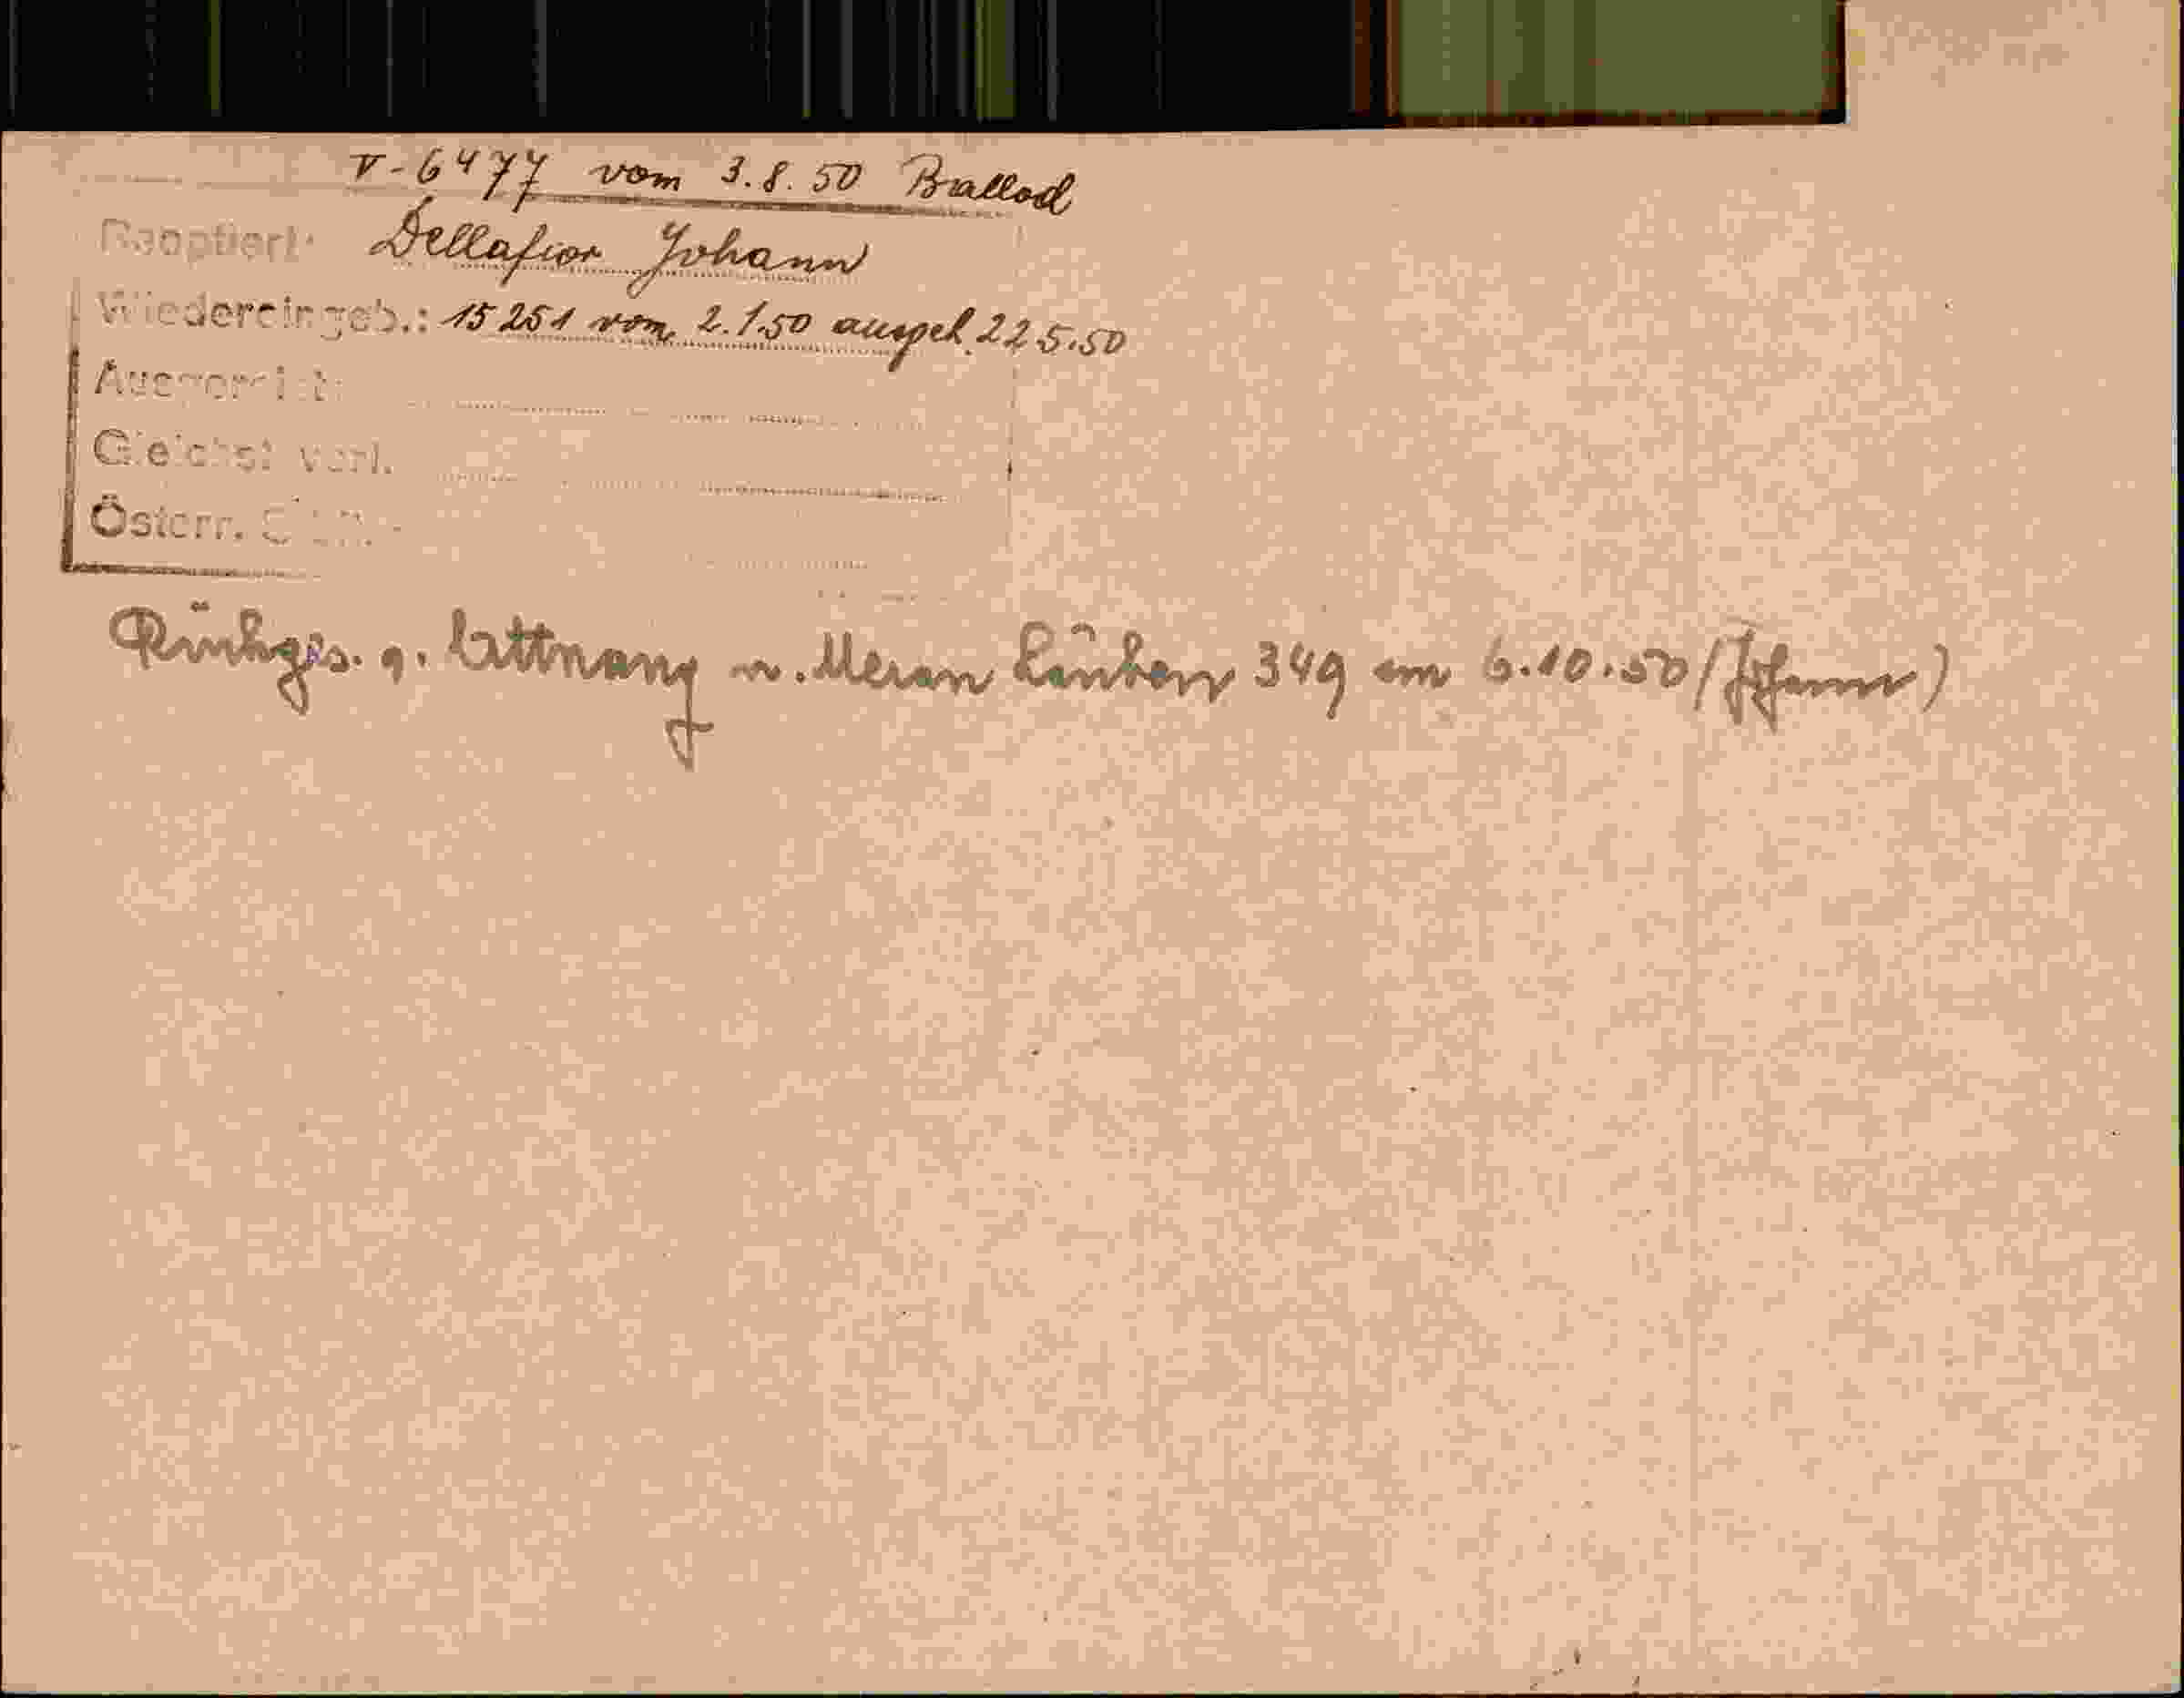 V-6477 vom 3.8.50 Ballod
Reoptiert: Dellafior Johann
Wiedereingeb.: 15251 vom 2.1.50 ausgeh. 22.5.50
Ausgereist:
Gleichst. verl.
Österr.
n. Meran Lauben 349 am 6.10.50 (Johann)